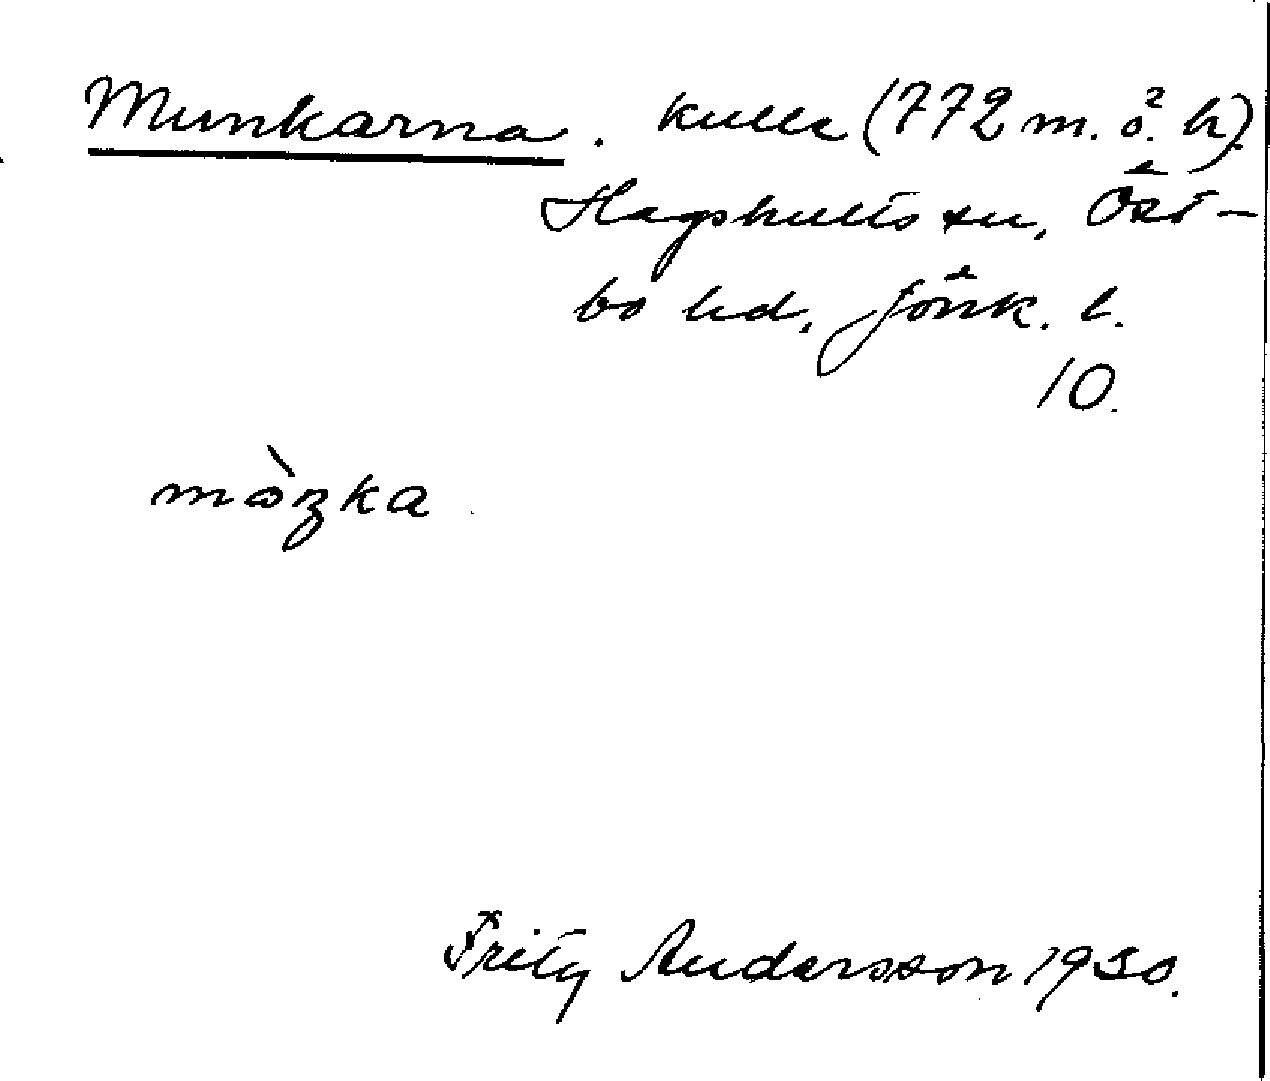 Munkarna. kulle (772 m. ö. h).
Hagshults sn, Öst-
bo hd, Jönk. l.
10.
mòŋka
Fritz Andersson 1930.